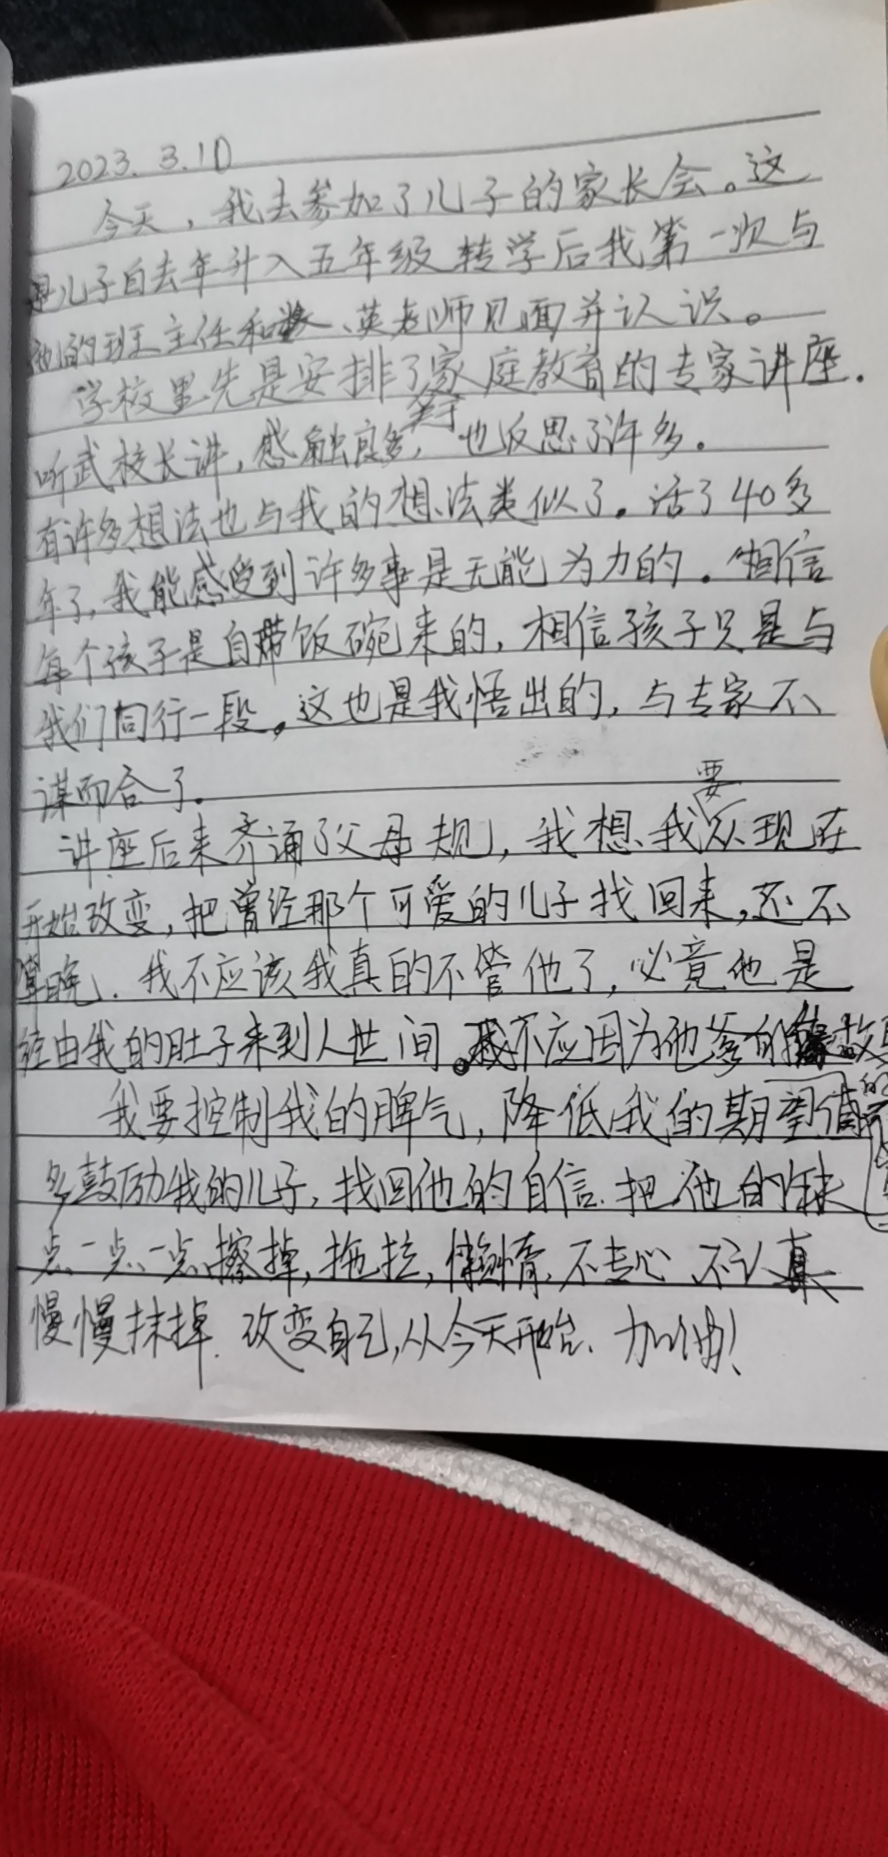 2023.3.10
今天，我去参加了儿子的家长会。这
是儿子自去年升入五年级转学后我第一次与
他的班主任和数、英老师见面并认识。
学校里先是安排了关于家庭教育的专家讲座.
听武校长讲，感触良多，也反思了许多.
有许多想法也与我的想法类似了。活了40多
年了，我能感受到许多事是无能为力的.相信
每个孩子是自带饭碗来的，相信孩子只是与
我们同行一段。这也是我悟出的，与专家不
谋而合了.
讲座后来齐诵了父母规，我想、我要从现在
开始改变，把曾经那个可爱的儿子找回来，还不
算晚.我不应该我真的不管他了，必竟他是
经由我的肚子来到人世间。我不应因为他爹的缘故
我要控制我的脾气，降低我的期望值
多鼓励我的儿子，找回他的自信.把他的缺
点一点一点擦掉，拖拉，懒惰、不专心、不认真
慢慢抹掉.改变自己，从今天开始、加油！